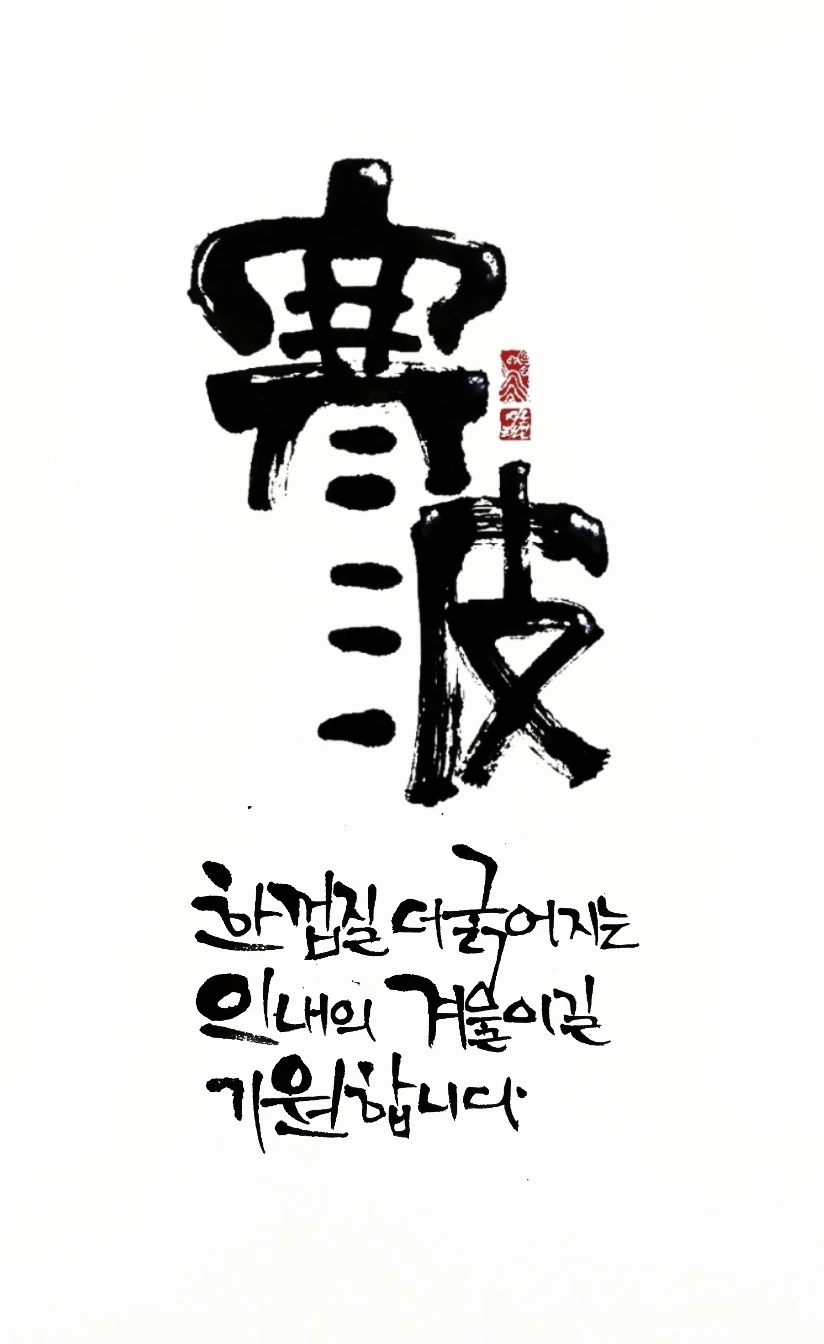 寒波
한 껍질 더 굵어지는
인내의 겨울이길
기원합니다.